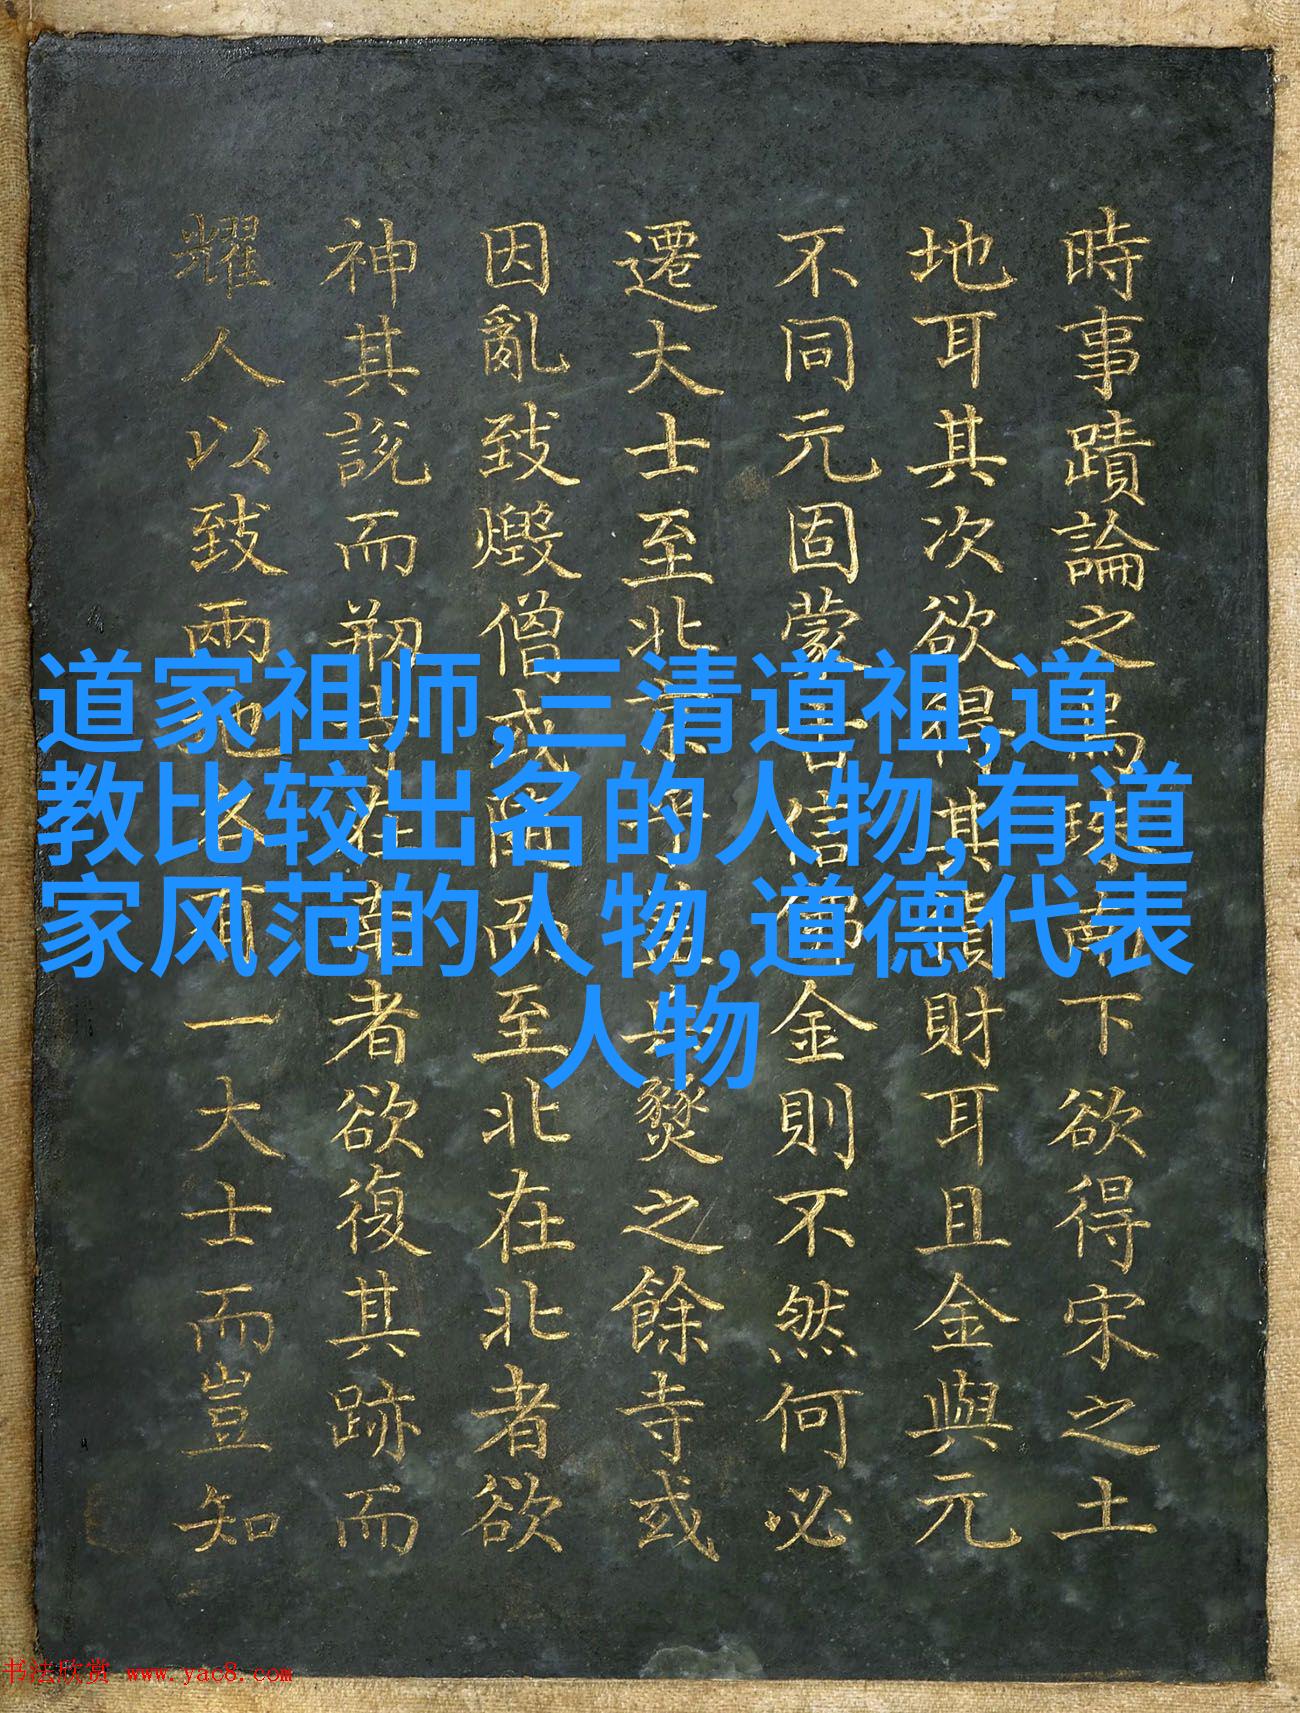 時事蹟論之下欲得宋之土
地耳其次欲得其財耳且金與元
不同元固蒙古信佛金則不然何必
遷大士至北京燹之餘寺或
因亂致燬僧或而至北在北者欲
神其說而剏寺在者欲復其跡而
耀人以致兩地各有一大士而豈知
道家祖师,三清道祖,道
教比较出名的人物,有道
家风范的人物,道德代表
人物
书法欣赏 www.yac8.com